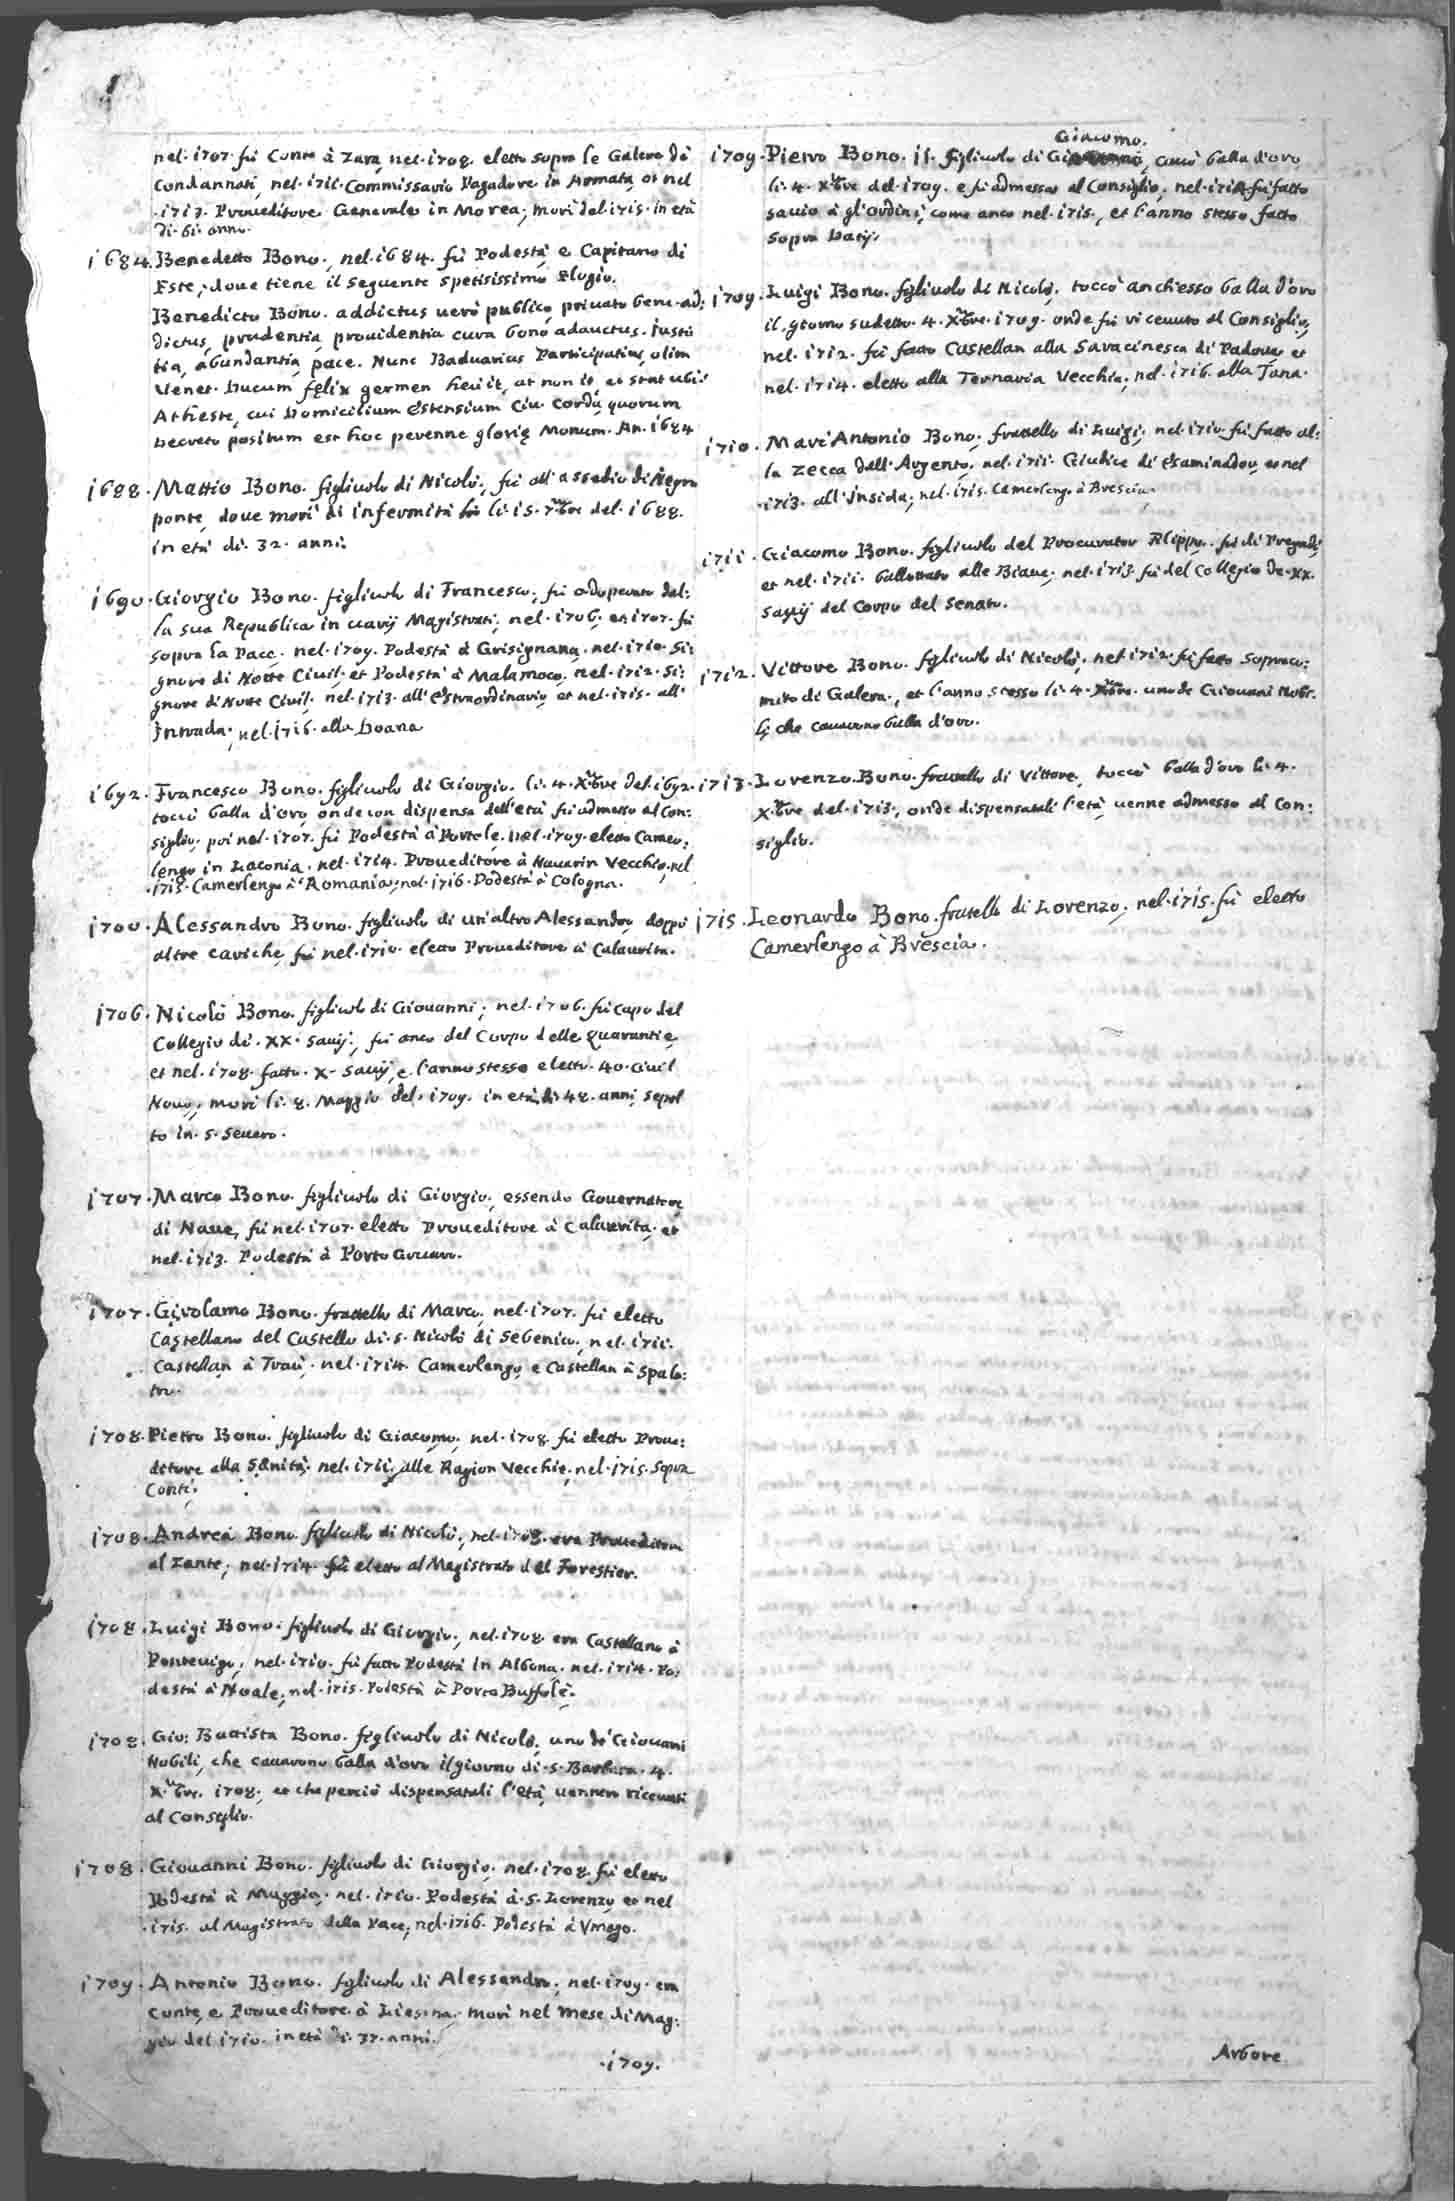 nel. 1707. fù Conte à Zara, nel. 1708. eletto sopra le Galere de
Condannati, nel. 1711. Commissario Pagadore in Armata, et nel
.1713. Proueditore Generale in Morea; morì del. 1715. in età
di. 61. anno.
1684. Benedetto Bono., nel. 1684. fù Podestà, e Capitano di
Este, doue tiene il seguente spetisissimo Elogio.
Benedicto Bono. addictus uerò publico, priuato bene. ad:
dictus, prudentia, prouidentia cura bono adauctus. justi
tia, abundantia, pace. Nunc Baduarius Participatius, olim
Venet. Ducum felix germen heu it, at non it, et stat ubi:
Atheste, cui Domicilium Estensium Ciu. corda, quorum
Decreto positum est hoc perenne glorię Monum. An. 1684
1688. Mattio Bono. figliuolo di Nicolò, fù all'assedio di Negro
ponte, doue morì di infermità li. 15. 7bre del. 1688.
in età di. 32. anni.
1690. Giorgio Bono. figliuolo di Francesco, fù adoperato dal:
la sua Republica in uarij Magistrati, nel. 1706. et 1707. fù
sopra la Pace. nel. 1709. Podestà à Grisignana. nel. 1710. Si:
gnore di Notte Ciuil. et Podestà à Malamoco, nel. 1712. Si:
gnore di Notte Ciuil. nel. 1713. all'Estraordinario, et nel. 1715. all'
Intrada; nel. 1716. alla Doana
1692. Francesco Bono. figliuolo di Giorgio. li. 4. Xbre del. 1692.
toccò balla d'oro, onde con dispensa dell'età fù admesso al Con:
siglio. poi nel. 1707. fù Podestà à Portole, nel. 1709. eletto Camer:
lengo in Laconia. nel. 1714. Proueditore à Nauarin Vecchio, nel
.1715. Camerlengo à Romania, nel. 1716. Podestà à Cologna.
1700. Alessandro Bono. figliuolo di un'altro Alessandro, doppò
altre cariche, fù nel. 1710. eletto Proueditore à Calaurita.
1706. Nicolò Bono. figliuolo di Giouanni; nel. 1706. fù Capo del
Collegio di. XX. Sauij., fù anco del Corpo delle Quarantie,
et nel. 1708. fatto. X. Sauij, e l'anno stesso eletto. 40. Ciuil
Nouo, morì li. 8. Maggio del. 1709. in età di 48. anni, sepol
to in. S. Seuero.
1707. Marco Bono. figliuolo di Giorgio, essendo Gouernatore
di Naue, fù nel. 1707. eletto Proueditore à Calaurita, et
nel. 1713. Podestà à Porto Gruaro.
1707. Girolamo Bono. frattello di Marco, nel. 1707. fù eletto
Castellano del Castello di. S. Nicolò di Sebenico, nel. 1711.
Castellan à Traù. nel. 1714. Camerlengo, e Castellan à Spala:
tro.
1708. Pietro Bono. figliuolo di Giacomo, nel. 1708. fù eletto Proue:
ditore alla Sanità, nel. 1711. alle Ragion Vecchie, nel. 1715. Sopra
Conti.
1708. Andrea Bono. figliuolo di Nicolò, nel. 1708. era Proueditore
al Zante, nel. 1714. fù eletto al Magistrato del Forestier.
1708. Luigi Bono. figliuolo di Giorgio, nel. 1708. era Castellano à
Ponteuigo, nel. 1710. fù fatto Podestà in Albona. nel. 1714. Po:
destà à Noale, nel. 1715. Podestà à Porto Buffolè.
1708. Gio: Battista Bono. figliuolo di Nicolò, uno de Giouani
Nobili, che cauarono balla d'oro il giorno di. S. Barbara. 4.
Xbre. 1708. et che perciò dispensatali l'età, uennero riceuuti
al Conseglio.
1708. Giouanni Bono. figliuolo di Giorgio, nel. 1708. fù eletto
Podestà à Muggia. nel. 1710. Podestà à. S. Lorenzo, et nel
.1715. al Magistrato della Pace, nel. 1716. Podestà à Vmago.
1709. Antonio Bono. figliuolo di Alessandro, nel. 1709. era
Conte, e Proueditore à Liesina. morì nel mese di Mag:
gio del 1710. in età di. 77. anni.
.1709.
Giacomo.
1709. Pietro Bono. figliuolo di cauò balla d'oro
li. 4. Xbre del. 1709. e fù admesso al Consiglio, nel. 1714 fù fatto
sauio à gl'ordini, come anco nel. 1715., et l'anno stesso fatto
sopra Datij.
1709. Luigi Bono. figliuolo di Nicolò, toccò anch'esso balla d'oro
il giorno sudetto. 4. Xbre. 1709. onde fù riceuuto al Consiglio,
nel. 1712. fù fatto Castellan alla Saracinesca di Padoua, et
nel. 1714. eletto alla Ternaria Vecchia, nel. 1716. alla Tana.
1710. Marc'Antonio Bono, frattello di Luigi, nel. 1710. fù fatto al:
la Zecca dell'Argento, nel. 1711. Giudice di Esaminador, et nel
.1713. all'Insida, nel. 1715. Camerlengo à Brescia.
1711. Giacomo Bono. figliuolo del Procurator Filippo. fù di Pregadi,
et nel. 1711. ballottato alle Biaue, nel. 1713. fù del Collegio de. XX.
Sauij del Corpo del Senato.
1712. Vittore Bono. figliuolo di Nicolò, nel 1712. fù fatto Sopraco:
mito di Galera, et l'anno stesso li. 4. Xbre. uno de Giouani Nobi:
li, che cauarono balla d'oro.
1713. Lorenzo Bono. frattello di Vittore, toccò balla d'oro li. 4.
Xbre del. 1713., onde dispensatali l'età, uenne admesso al Con:
siglio.
1715. Leonardo Bono. fratello di Lorenzo, nel. 1715. fù eletto
Camerlengo à Brescia.
Arbore